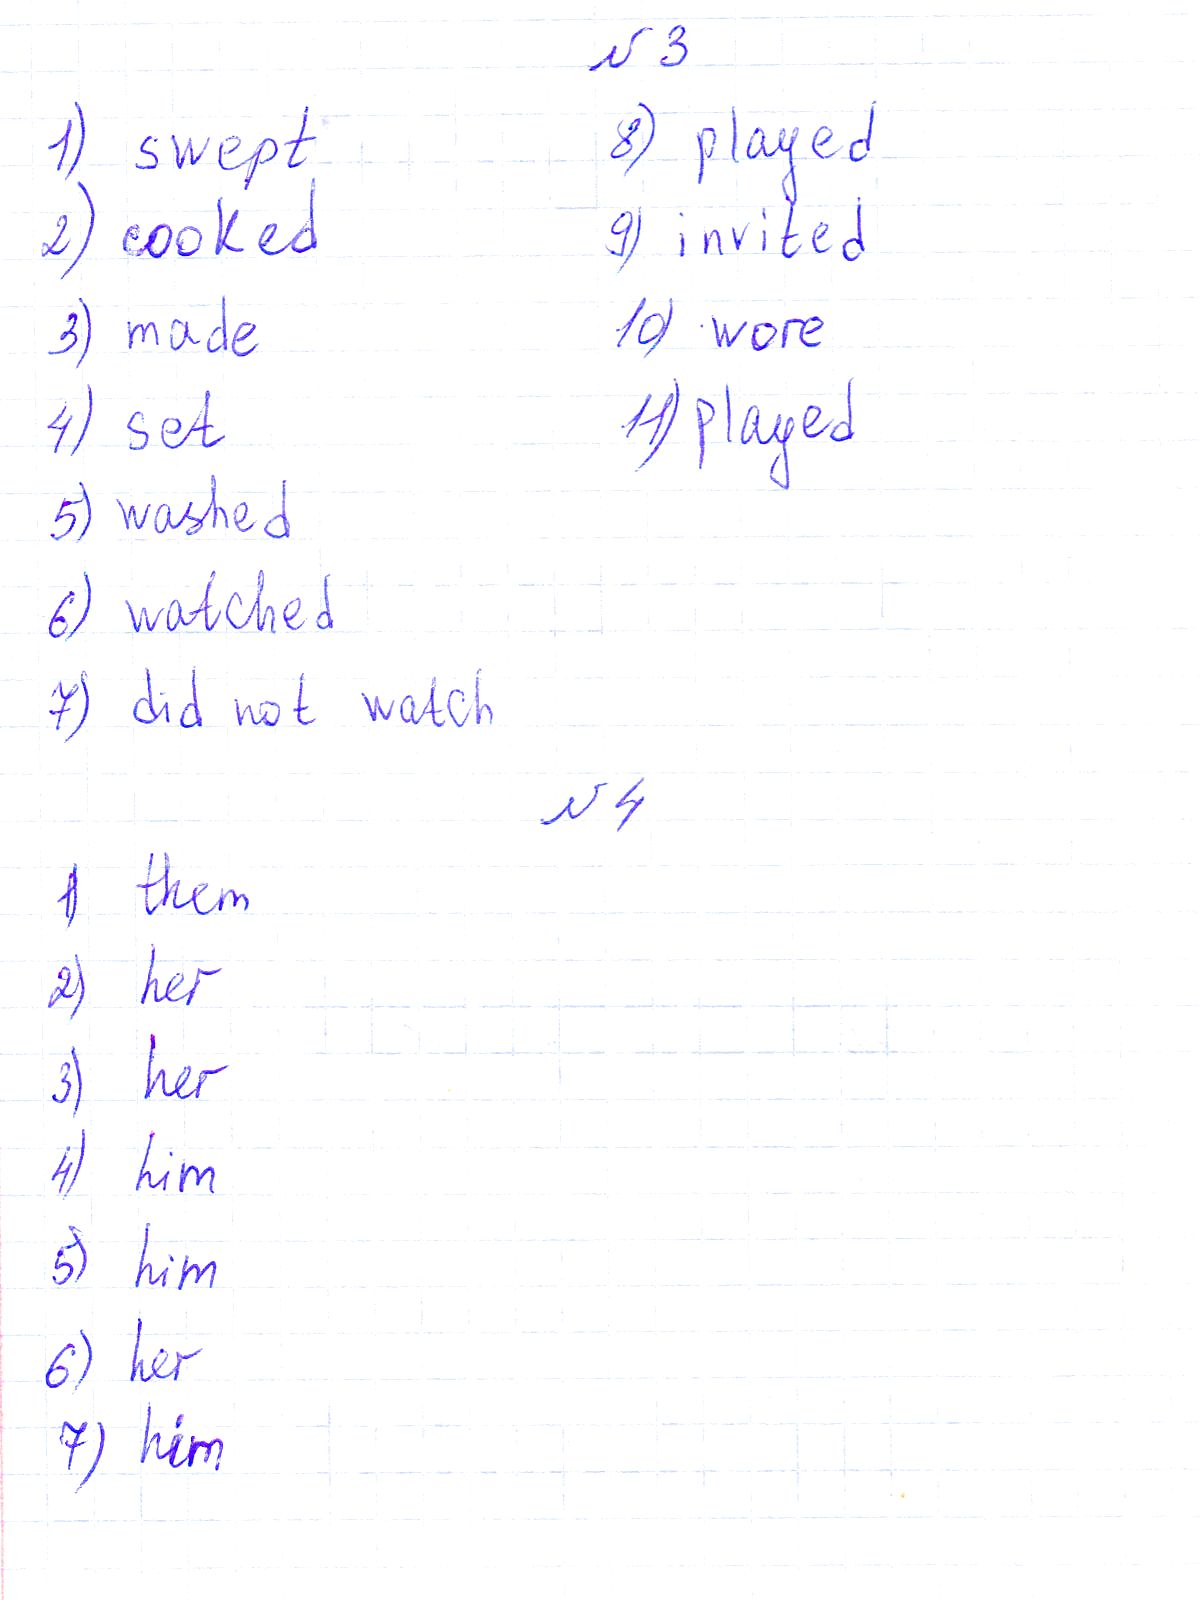 № 3
1) swept
2) cooked
3) made
4) set
5) washed
6) watched
7) did not watch
8) played
9) invited
10) wore
11) played
№ 4
1) them
2) her
3) her
4) him
5) him
6) her
7) him